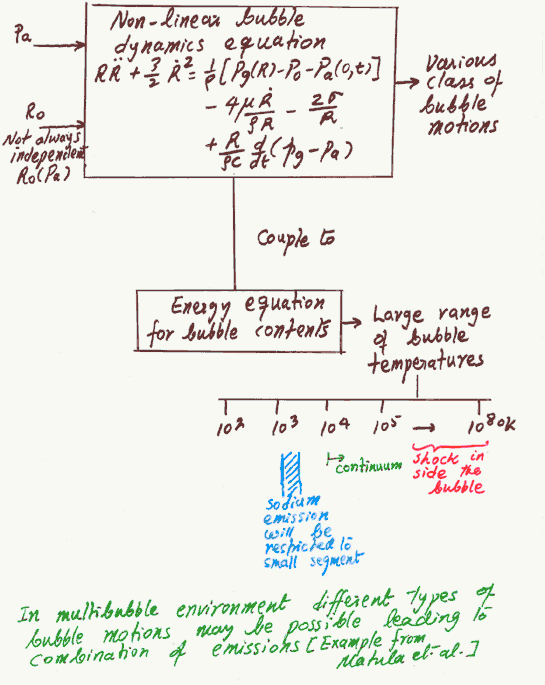 Pa
Non-linear bubble
dynamics equation
RR̈ + 3/2 Ṙ² = 1/ρ [Pg(R)-Po-Pa(0,t)]
- 4μṘ/ρR - 2σ/R
+ R/ρc d/dt (pg-Pa)
Various
class of
bubble
motions
Ro
Not always
independent
Ro(Pa)
Couple to
Energy equation
for bubble contents
Large range
of bubble
temperatures
10² 10³ 10⁴ 10⁵ → 10⁸ok
continuum
shock in
side the
bubble
sodium
emission
will be
restricted to
small segment
In multibubble environment different types of
bubble motions may be possible leading to
combination of emissions [Example from
Matula et-al.]